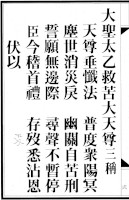 大聖太乙救苦大天尊三稱
天尊垂懺法 普度衆陽冥
塵世消災戾 幽關自苦刑
誓願無邊際 尋聲不暫停
臣今稽首禮 存歿悉沾恩
伏以